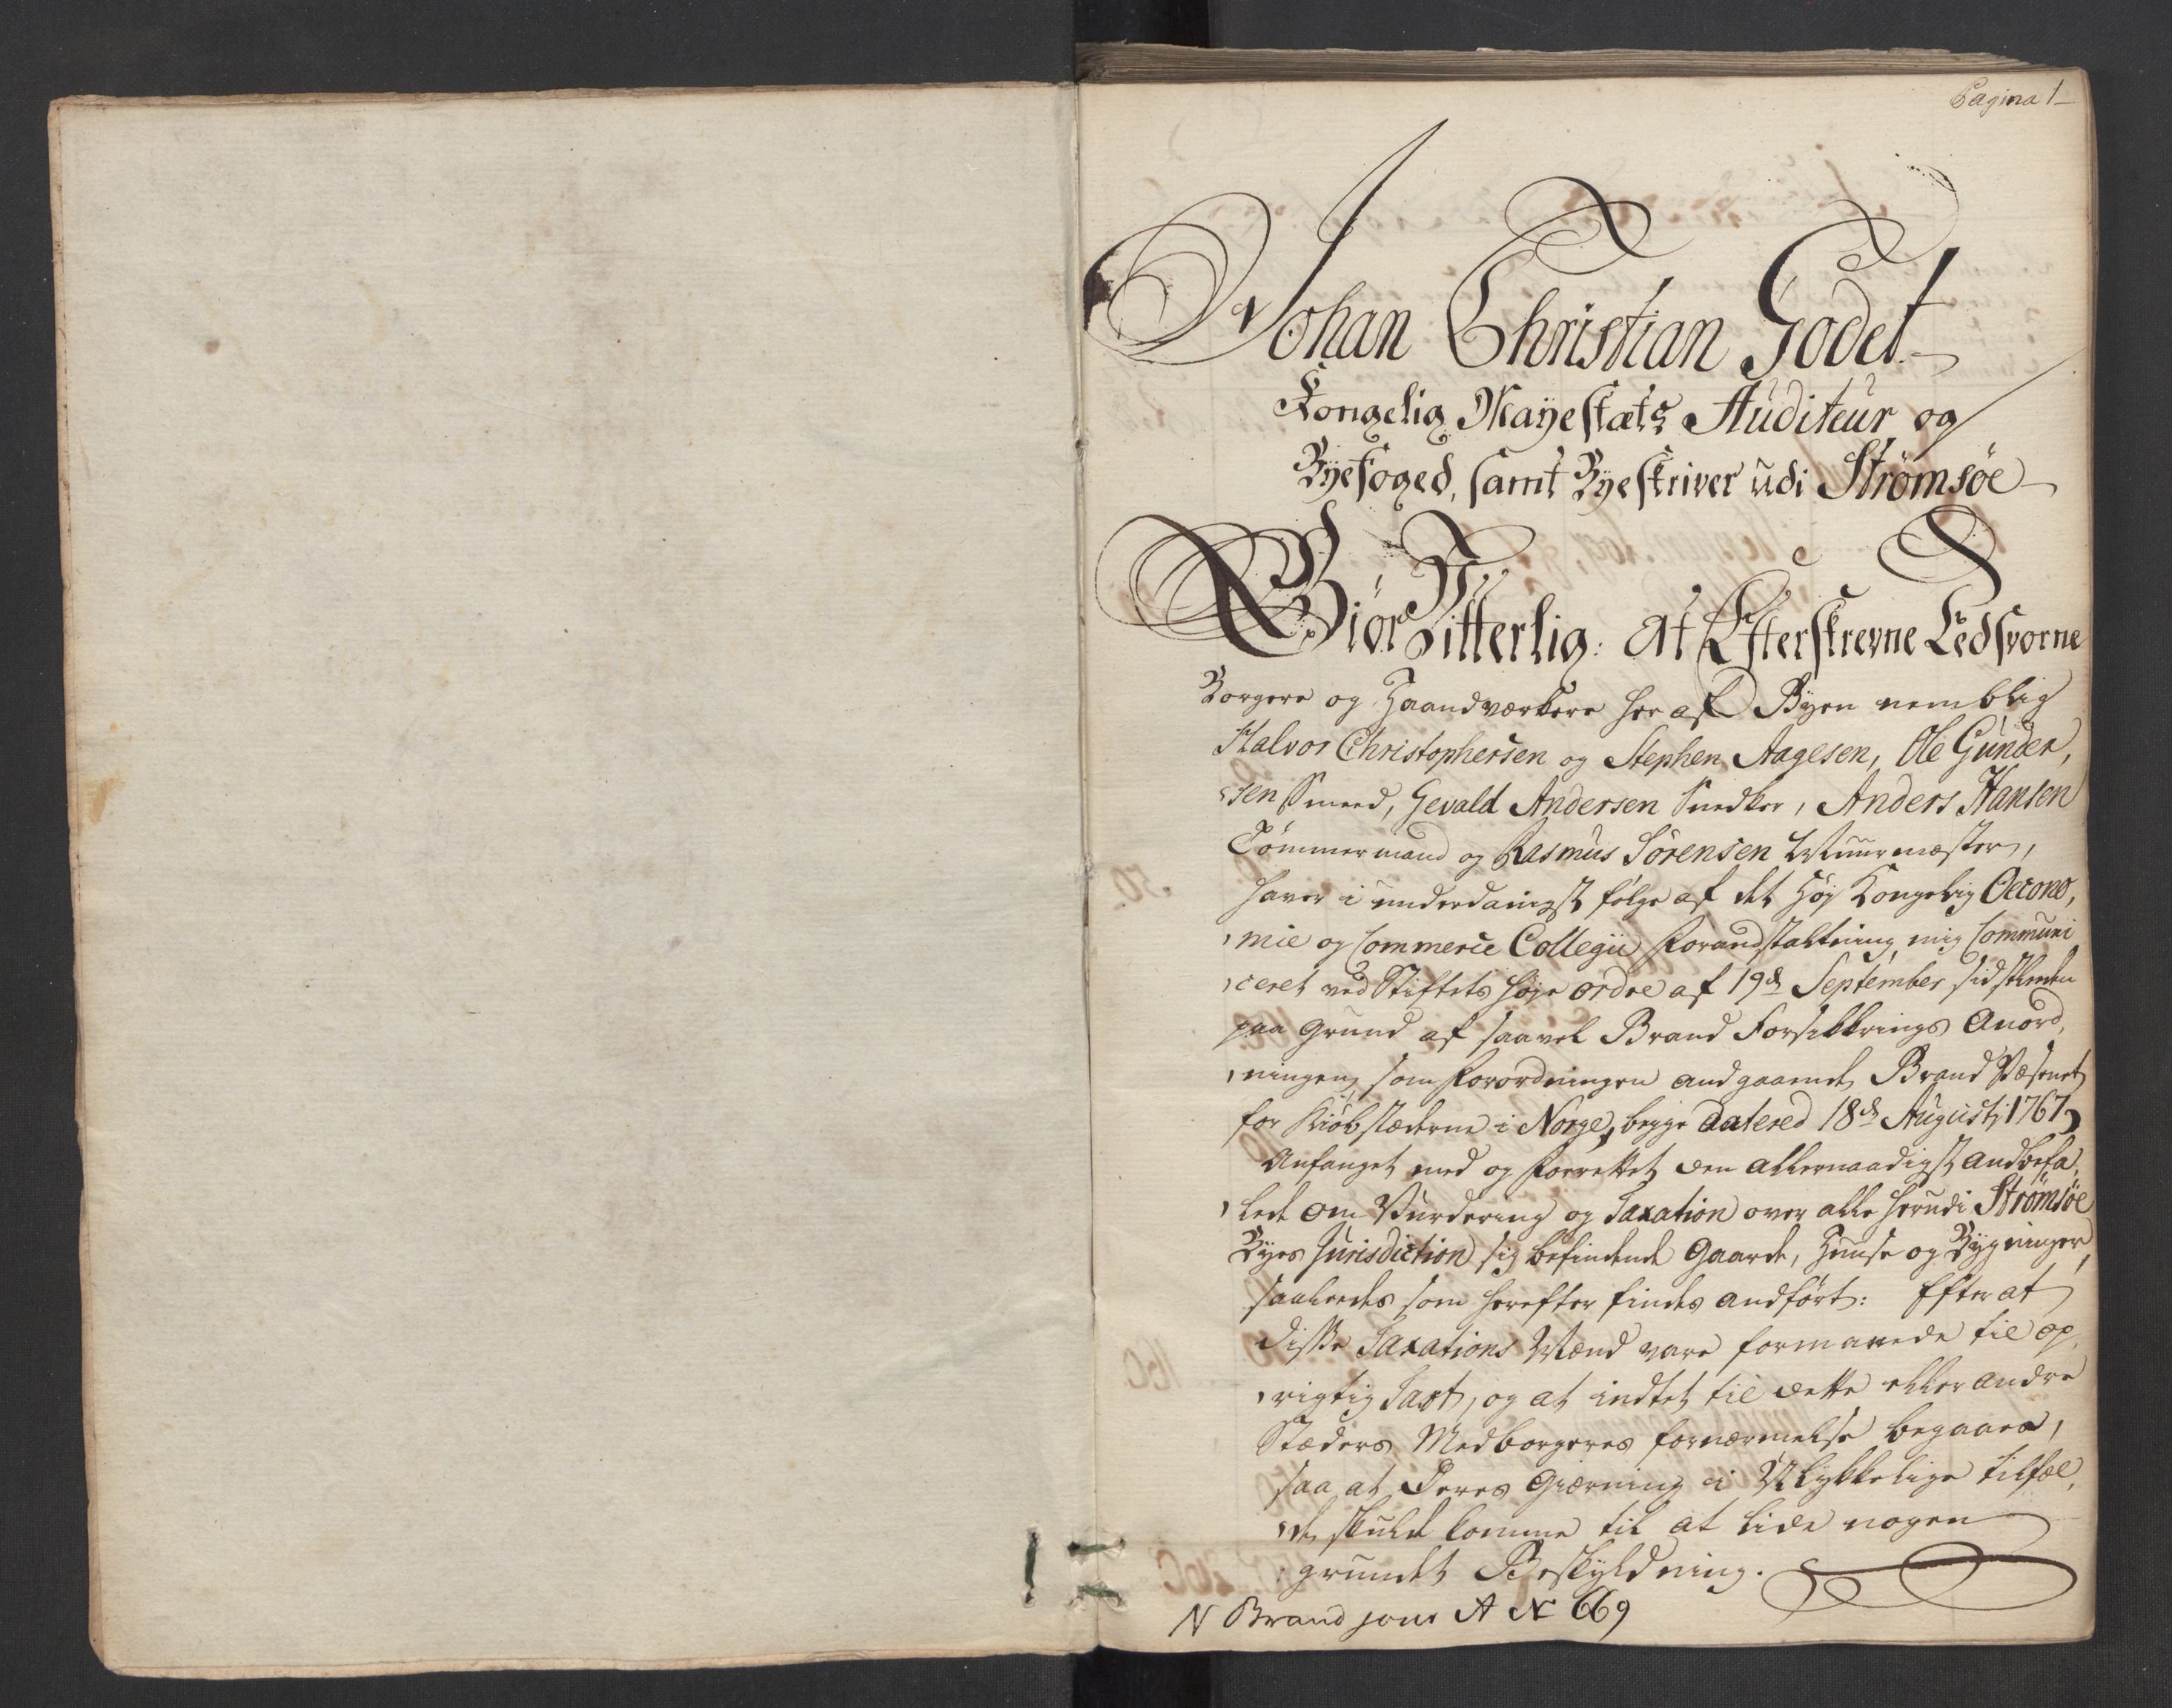 Pagina 1
Johan Christian Godet
Kongelig Mayestæts Auditeur og
Byefoged, samt Byeskriver udi Strömsöe
Giör Vitterlig: At Efterskrevne Eedsvorne
Borgere og Haandværkere her af Byen nemblig
Halvor Christophersen og Stephen Aagesen, Ole Gunder,
sen Smed, Gevald Andersen Snedker, Anders Hansen
Tömmermand og Rasmus Sörensen Muurmæster,
haver i underdanigst fölge af det Höy Kongelig Oecono,
mie og Commerce Collegii foranstaltning mig Communi
ceret ved Stiftets höje ordre af 19d September sidstleden
paa Grund af saavel Brand Forsikkrings Anord,
ningen, som forordningen andgaaende Brand Væsenet
for Kiöbstæderne i Norge, begge datered 18d Augusti 1767,
Anfanget med og forrettet den allernaadigst andbefa,
lede om Vurdering og Taxation over alle herudi Strömsöe
Byes Jurisdiction sig befindende Gaarde, Huuse og Bygninger,
saaleedes som herefter findes andfört: Efter at
disse Taxations Mænd vare formanede til op,
rigtig Taxt, og at indtet til dette eller andre
Stæders Medborgeres fornærmelse begaaes,
saa at Deres Giærning i Ulykkelige tilfæl,
de skulde komme til at lide nogen
grundet Beskyldning.
N Brand A N 669